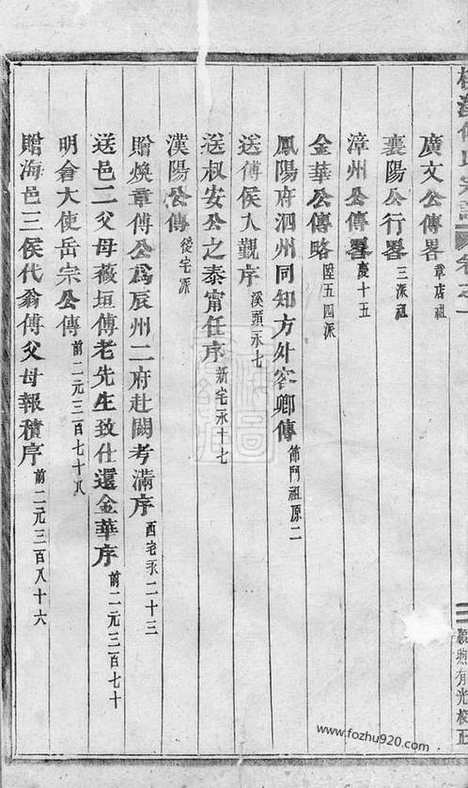 廣文公傳畧 章店祖
襄陽公行畧 三派祖
漳州公傳畧 慶十五
金華公傳略 陞五四派
鳳陽府泗州同知方外客卿傳 佈門祖原二
送傅侯入觀序 溪頭永七
送叔安公之泰甯任序 新宅永十七
漢陽公傳 從宅派
贈煥章傅公爲辰州二府赴闕考滿序 西宅永二十三
送邑二父母薇垣傅老先生致仕還金華序 前二元三百七十
明倉大使岳宗公傳 前二元三百七十八
贈海邑三侯代翁傅父母報積序 前二元三百八十六
有光校正
www.fozhu920.com